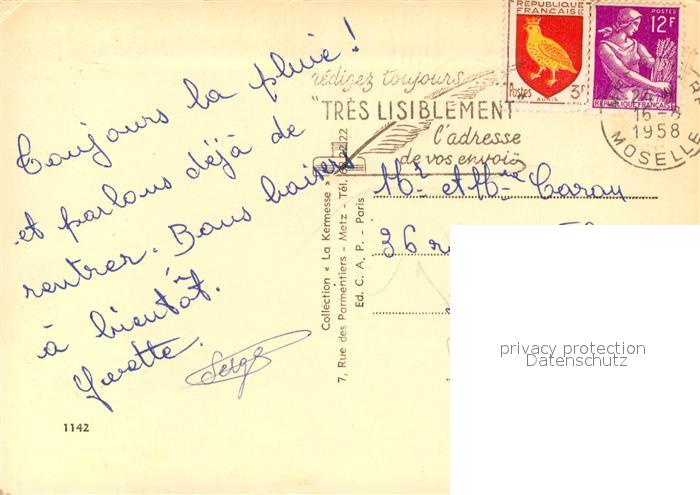 Toujours la pluie !
et parlons déjà de
rentrer. Bons baisers
à bientôt.
Yvette.
Serge
1142
Collection « La Kermesse »
7, Rue des Parmentiers - Metz - Tél. 68.22.22
Ed. C. A. P. - Paris
rédigez toujours
"TRÈS LISIBLEMENT
l'adresse
de vos envois
REPUBLIQUE
FRANÇAISE
Postes 3F
AUNIS
POSTES
12F
REPUBLIQUE FRANÇAISE
1958
MOSELLE
Mr et Mme Caron
36
privacy protection
Datenschutz